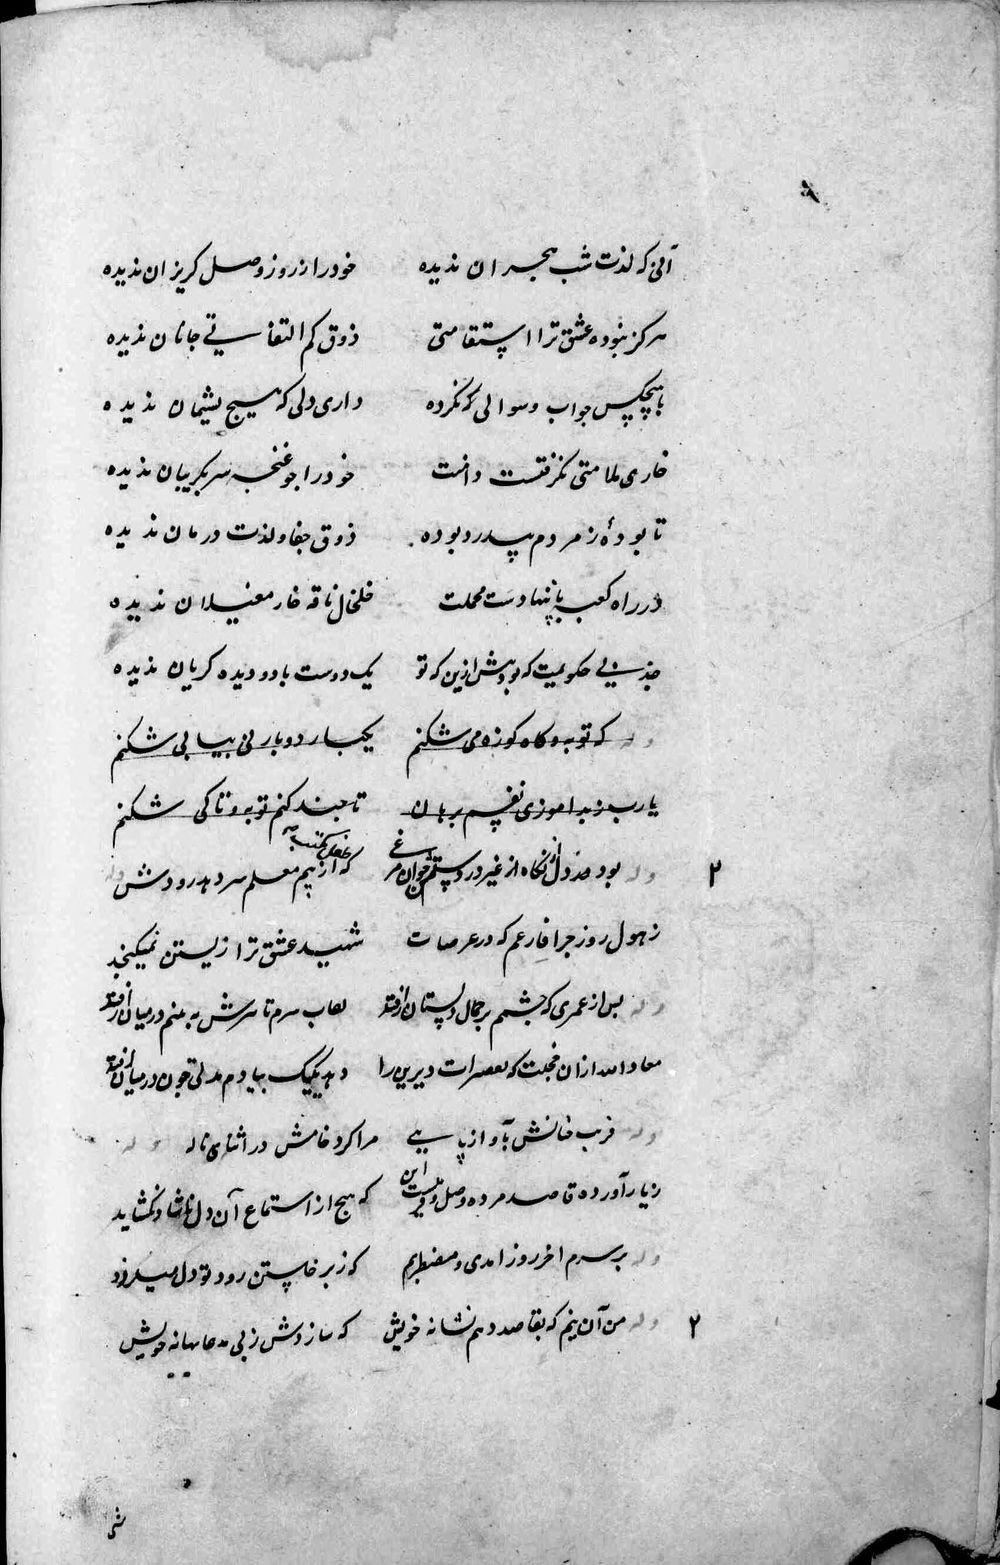 ۹
آنی که لذت شب هجران ندیده خود را ز روز وصل کریزان ندیده
هرکز نبوده عشق ترا استقامتی ذوق کم التفاتی جانان ندیده
با هیچکس جواب و سوالی که نکرده داری دلی که هیچ پشیمان ندیده
خاری ملامتی نکرفتست دامنت خود را جو غنچه سر بکریبان ندیده
تا بودهٔ ز مردم بیدرد بوده ذوق جفا و لذت درمان ندیده
در راه کعبه پا ننهادست محملت خلخال ناقه خار مغیلان ندیده
حکومیت که بود پیش ازین که تو یک دوست با دو دیده کریان ندیده
وله که توبه و کاه کوزه می شکنم یکبار دو بار نی پیاپی شکنم
یارب ز بد اموزی نفسم برهان تا چند کنم توبه و تا کی شکنم
۲
وله بود نکاه از غیر در چون مرغی که از بیم معلم سر دهد زودش وله
ز هول روز جزا فارغم که در عرصات شهید عشق ترا زیستن نمیکنجد
وله پس از عمری که چشمم بر جمال دلستان افتد نقاب شرم تا سرش به بینم در میان افتد
معاذ الله ازان خجلت که تقصیرات دیرین را دهد یکیک بیادم مدتی چون در میان افتد
وله فریب آواز پایی مرا کرد خامش در اثنای ناله وله
ز یار آورده قاصد مرده وصل و این که هیچ از استماع آن دل ناشاد نکشاید
وله بر سرم اخر روز امدی و مضطربم که ز برخاستن زود تو دل میلرزد
۲
وله من آن نیم که بقاصد دهم نشانه خویش که سازدش ز پی مدعا بهانه خویش
ش